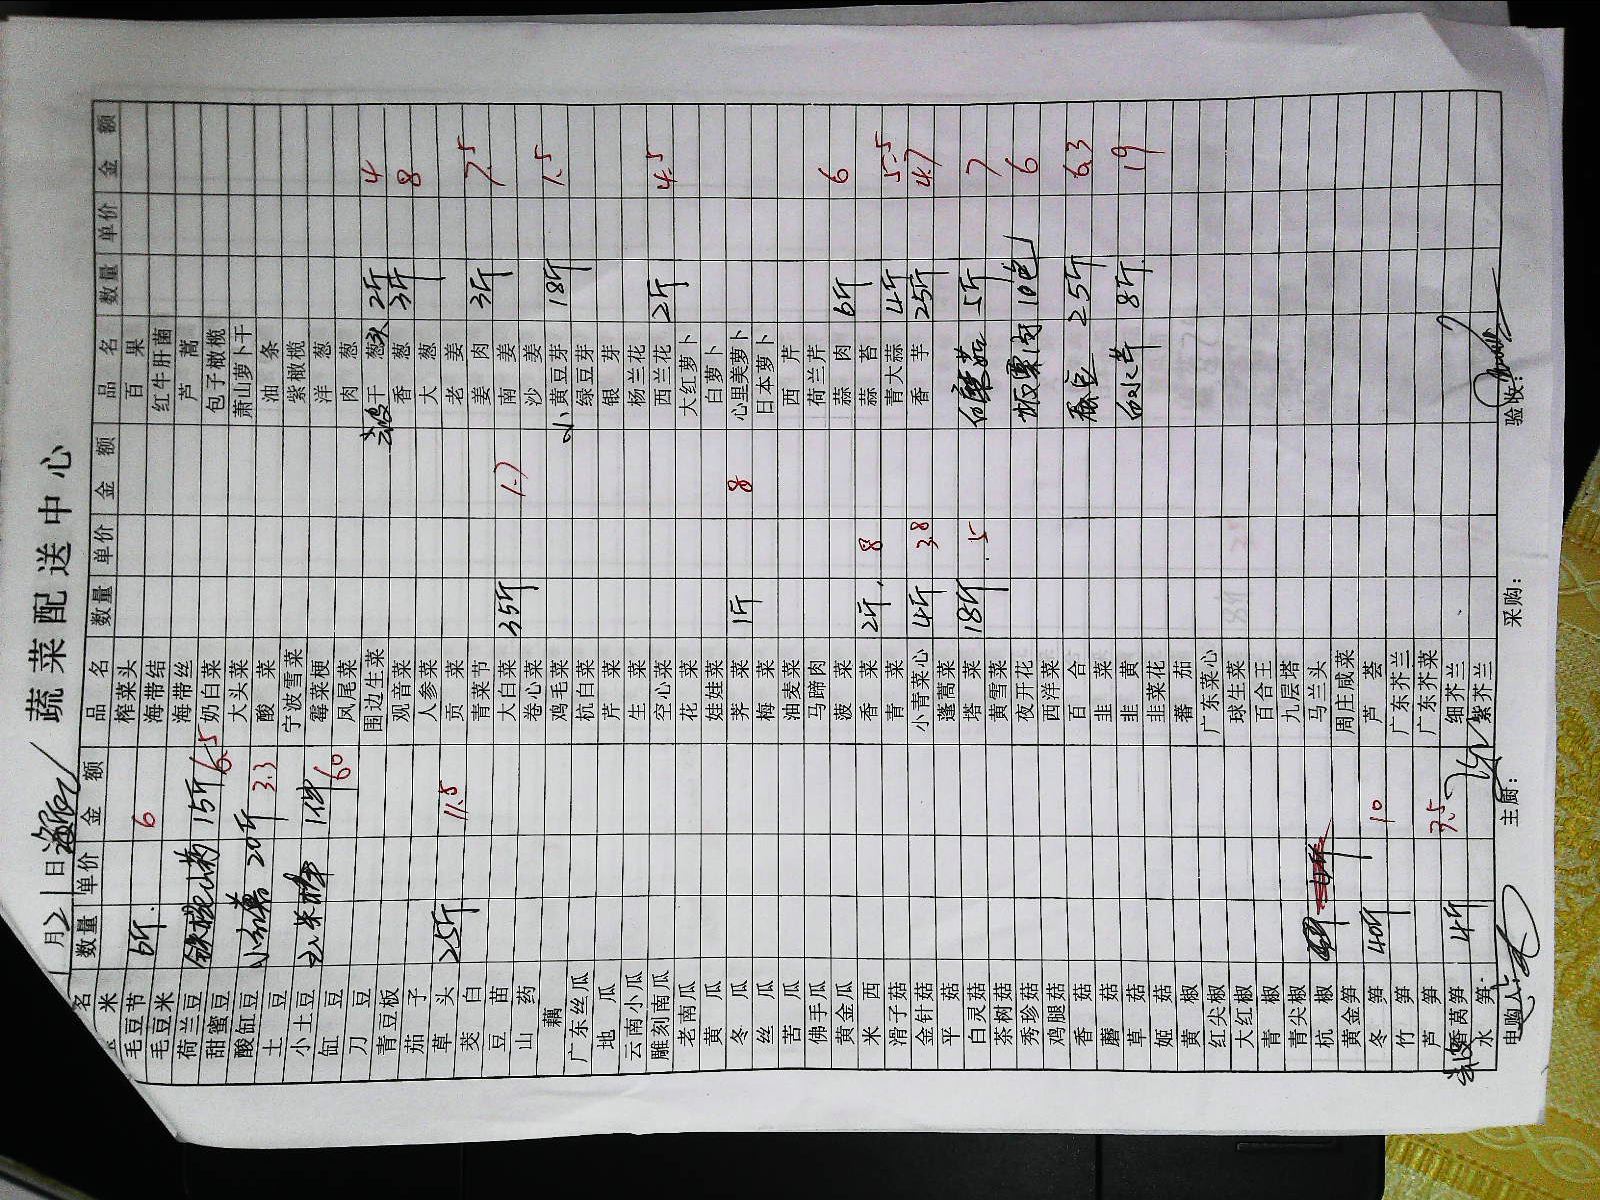 月21日 蔬菜配送中心
名 数量 单价 金额 品名 数量 单价 金额 品名 数量 单价 金额
米 榨菜头 百果
毛豆节 6斤 6 海带结 红牛肝菌
毛豆米 海带丝 芦蒿
荷兰豆 铁棍山药 15斤 6.5 奶白菜 包子橄榄
甜蜜豆 大头菜 萧山萝卜干
酸缸豆 小红薯 20斤 3.3 酸菜 油条
土豆 宁波雪菜 紫橄榄
小土豆 玉米棒 1件 60 霉菜梗 洋葱
缸豆 凤尾菜 肉葱
刀豆 围边生菜 干葱头 2斤 4
青豆板 观音菜 香葱 3斤 8
茄子 人参菜 大葱
草头 25斤 11.5 贡菜 老姜
茭白 青菜节 姜肉 3斤 7.5
豆苗 大白菜 35斤 1.7 南姜
山药 卷心菜 沙姜
藕 鸡毛菜 小黄豆芽 18斤 1.5
广东丝瓜 杭白菜 绿豆芽
地瓜 芹菜 银芽
云南小瓜 生菜 杨兰花
雕刻南瓜 空心菜 西兰花 2斤 4.5
老南瓜 花菜 大红萝卜
黄瓜 娃娃菜 白萝卜
冬瓜 荠菜 1斤 8 心里美萝卜
丝瓜 梅菜 日本萝卜
苦瓜 油麦菜 西芹
佛手瓜 马蹄肉 荷兰芹
黄金瓜 菠菜 蒜肉 6斤 6
米西 香菜 2斤 8 蒜苔
滑子菇 青菜 青大蒜 4斤 5.5
金针菇 小青菜心 4斤 3.8 香芋 25斤 4.7
平菇 蓬蒿菜
白灵菇 塔菜 18斤 .5 白蘑菇 5斤 7
茶树菇 黄雪菜
秀珍菇 夜开花 板栗肉 10包 6
鸡腿菇 西洋菜
香菇 百合 蚕豆 25斤 6.3
蘑菇 韭菜
草菇 韭黄 白水芹 8斤 19
姬菇 韭菜花
黄椒 蕃茄
红尖椒 广东菜心
大红椒 球生菜
青椒 百合王
青尖椒 九层塔
杭椒 马兰头
黄金笋 周庄咸菜
冬笋 40斤 10 芦荟
竹笋 广东芥兰
芦笋 广东芥菜
香莴笋 4斤 3.5 细芥兰
水笋 紫芥兰
申购人: 主厨: 采购: 验收: